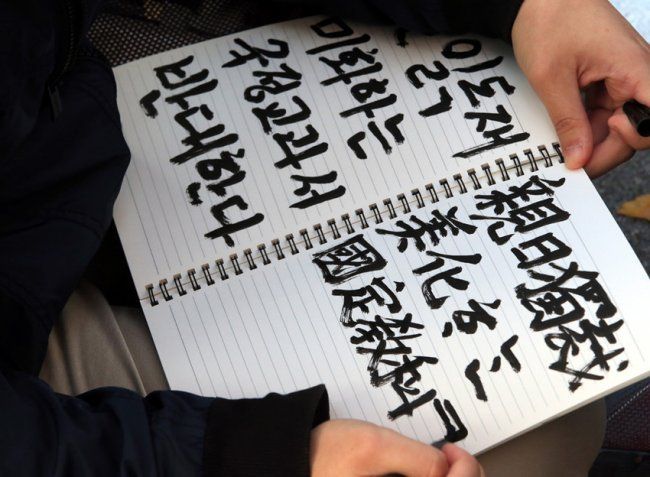 일독재
미화하는
국정교과서
반대한다
親日獨裁
美化하는
國定敎科